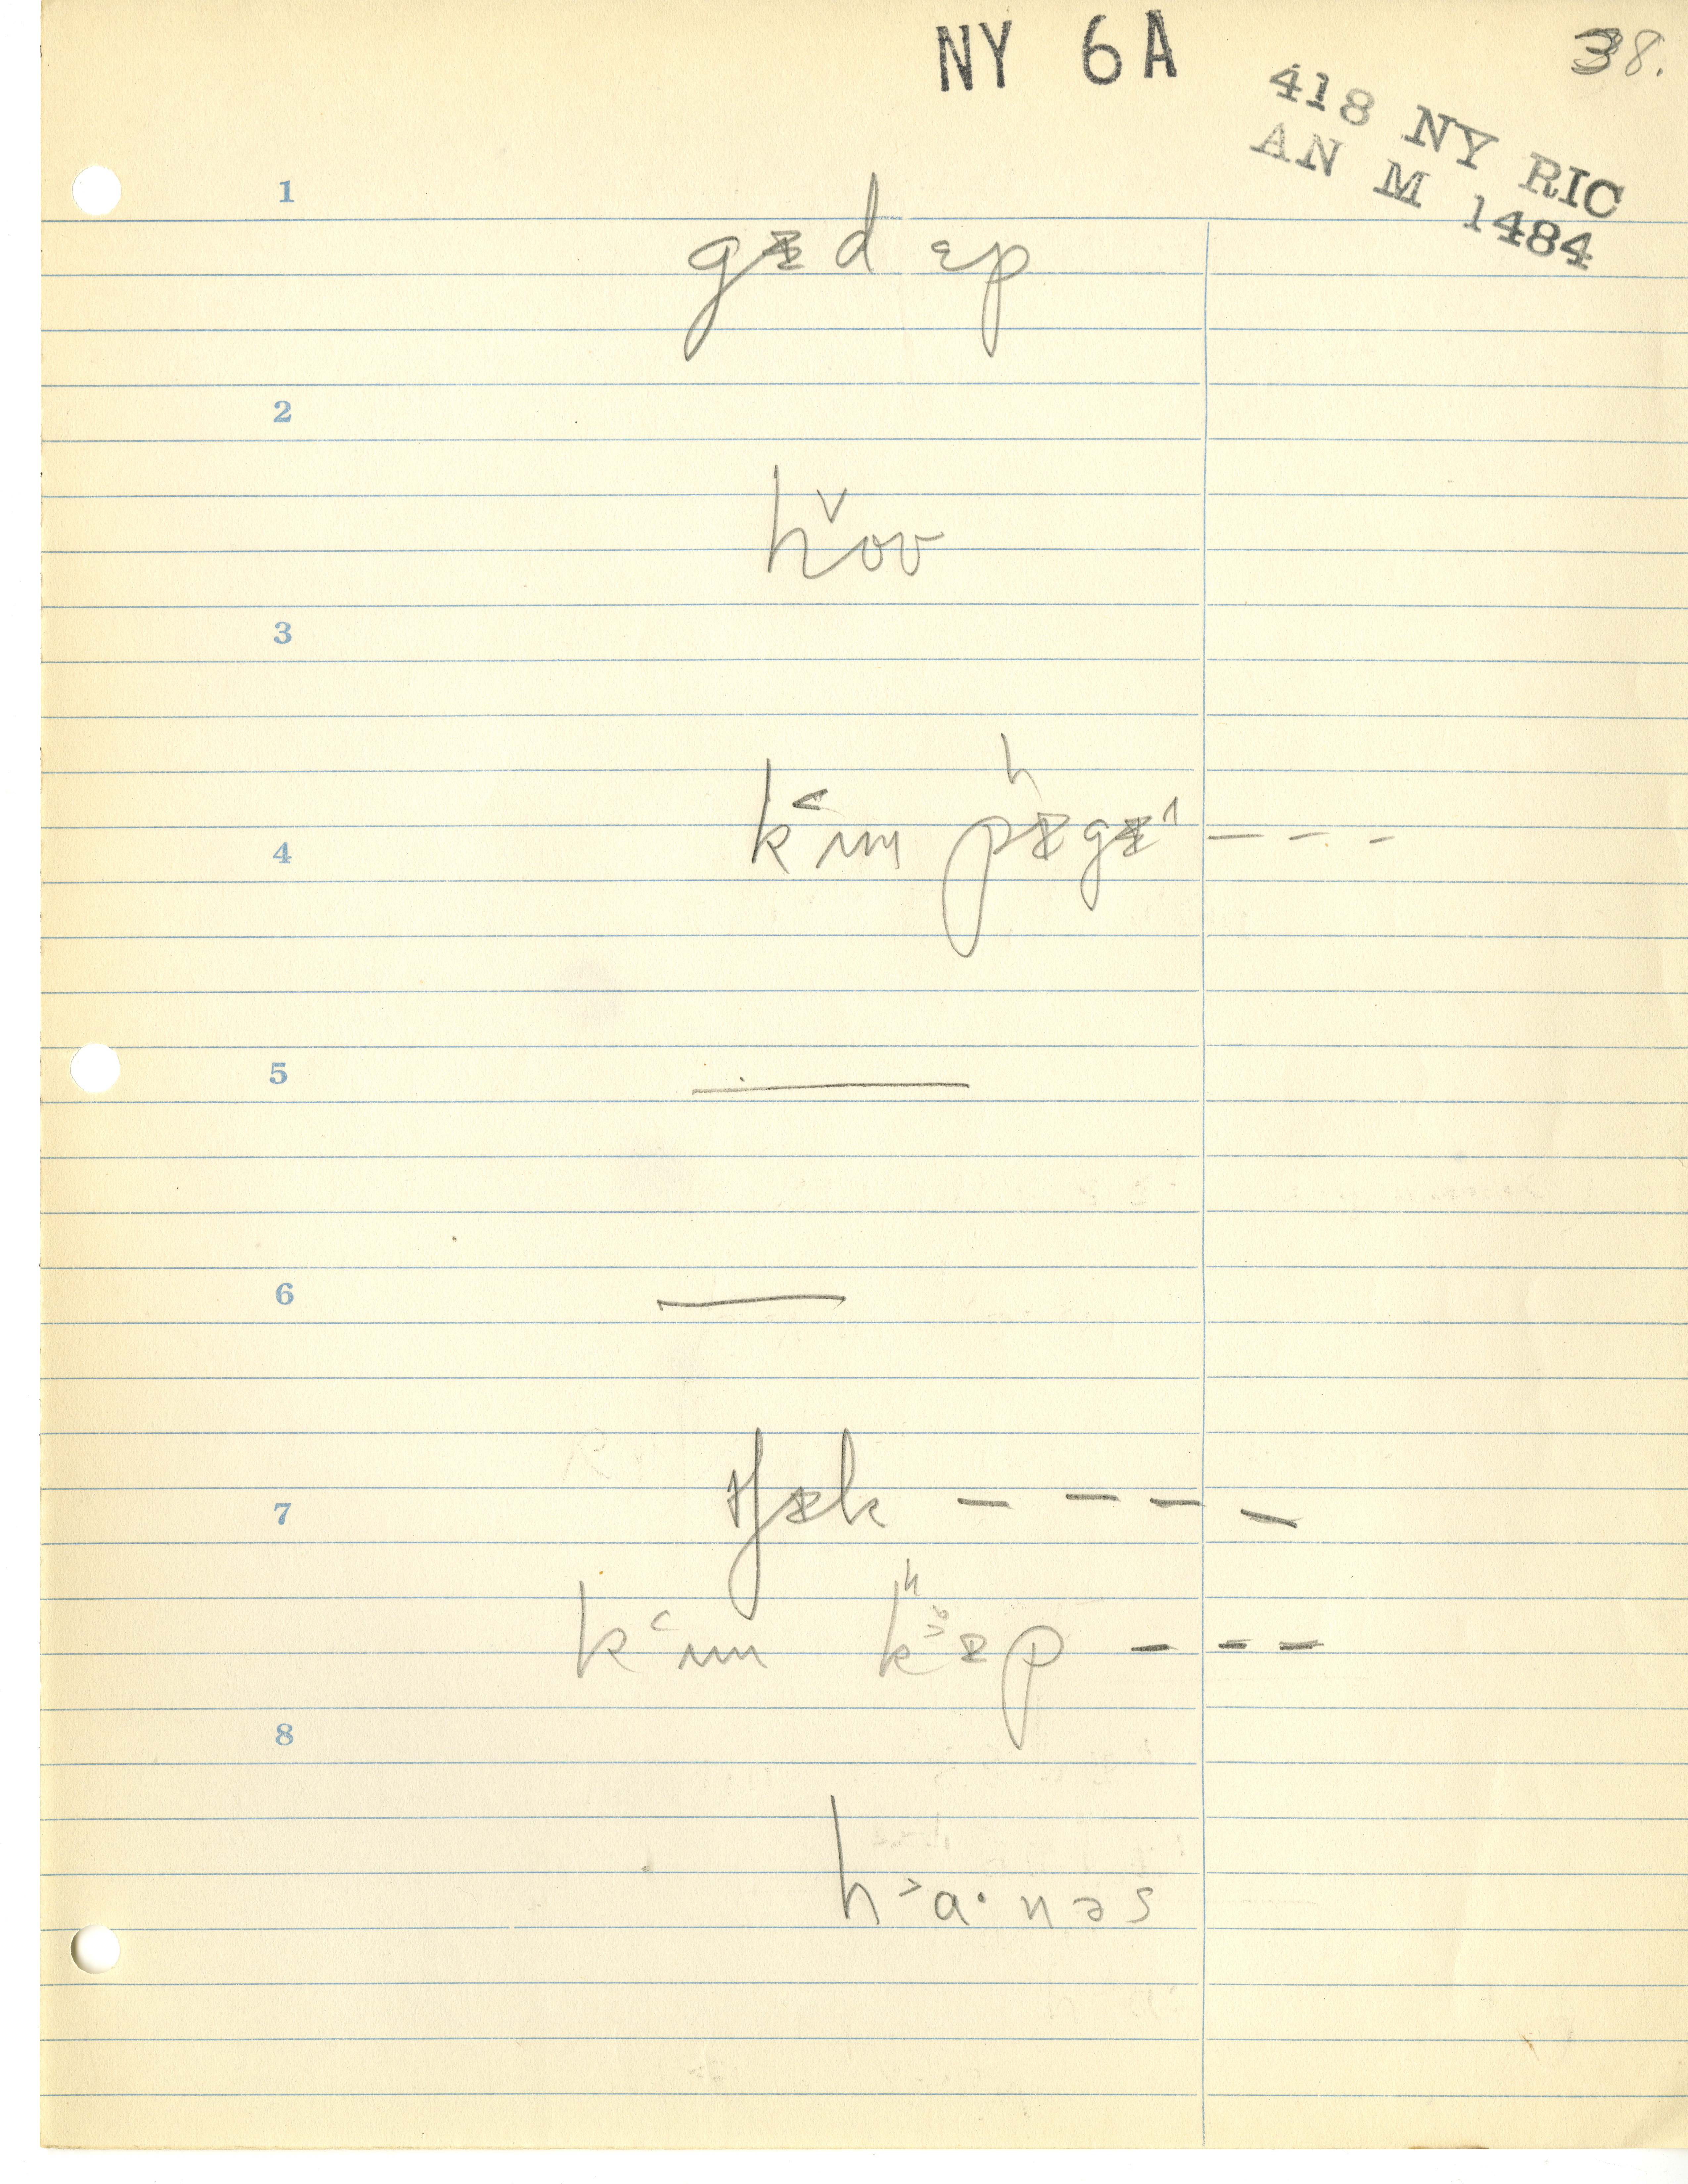 NY 6A
38.
418 NY RIC
AN M 1484
1
gɨd ɛp
2
hˇoʊ
3
k˂ʌm pʰɨgɨ^ – – –
4
5
6
ʧɨk – – – –
7
k˂ʌm kʰɨp – – –
8
h˃a·nəs